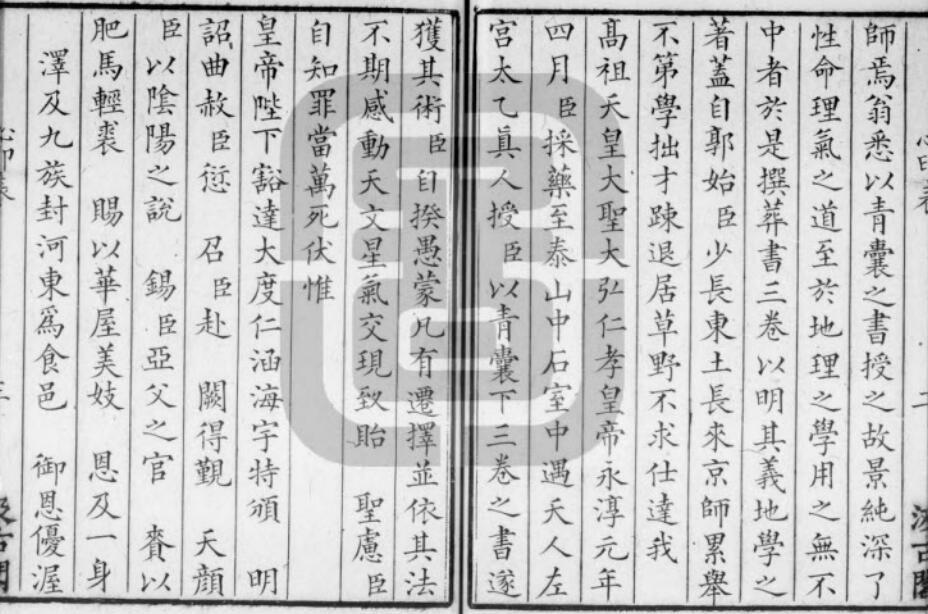 師焉翁悉以青囊之書授之故景純深了
性命理氣之道至於地理之學用之無不
中者於是撰葬書三卷以明其義地學之
著蓋自郭始臣少長東土長來京師累舉
不第學拙才踈退居草野不求仕達我
高祖天皇大聖大弘仁孝皇帝永淳元年
四月臣採藥至泰山中石室中遇天人左
宮太乙眞人授臣以青囊下三卷之書遂
獲其術臣自揆愚蒙凡有遷擇並依其法
不期感動天文星氣交現致貽 聖慮臣
自知罪當萬死伏惟
皇帝陛下豁達大度仁涵海宇特頒 明
詔曲赦臣愆 召臣赴 闕得覲 天顔
臣以陰陽之說 錫臣亞父之官 賚以
肥馬輕裘 賜以華屋美妓 恩及一身
澤及九族封河東爲食邑 御恩優渥